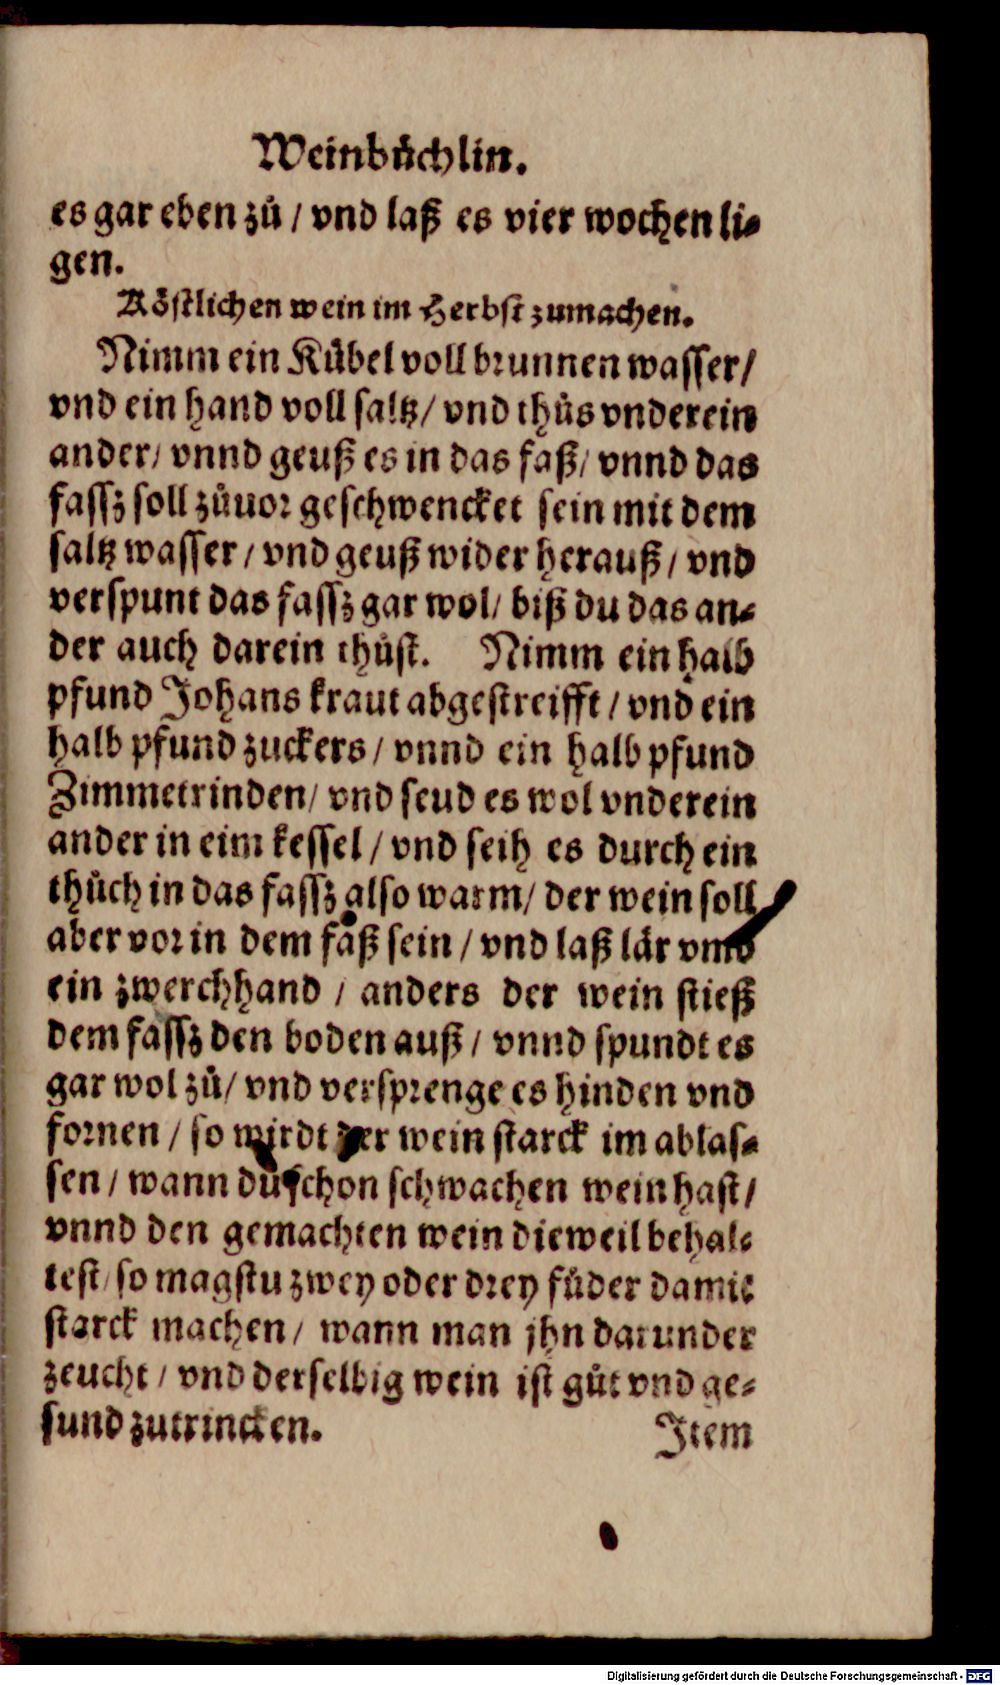 Weinbůchlin.
es gar eben zů / vnd laß es vier wochen li-
gen.
Köstlichen wein im Herbst zumachen.
Nimm ein Kübel voll brunnen wasser /
vnd ein hand voll saltz / vnd thůs vnderein
ander / vnnd geuß es in das faß / vnnd das
fassz soll zůuor geschwencket sein mit dem
saltz wasser / vnd geuß wider herauß / vnd
verspunt das fassz gar wol / biß du das an-
der auch darein thůst. Nimm ein halb
pfund Johans kraut abgestreifft / vnd ein
halb pfund zuckers / vnnd ein halb pfund
Zimmetrinden / vnd seud es wol vnderein
ander in eim kessel / vnd seih es durch ein
thůch in das fassz also warm / der wein soll
aber vor in dem faß sein / vnd laß lär vmb
ein zwerchhand / anders der wein stieß
dem fassz den boden auß / vnnd spundt es
gar wol zů / vnd versprenge es hinden vnd
fornen / so wirdt der wein starck im ablas-
sen / wann du schon schwachen wein hast /
vnnd den gemachten wein dieweil behal-
test / so magstu zwey oder drey fůder damit
starck machen / wann man jhn darunder
zeucht / vnd derselbig wein ist gůt vnd ge-
sund zutrincken.
Item
Digitalisierung gefördert durch die Deutsche Forschungsgemeinschaft - DFG